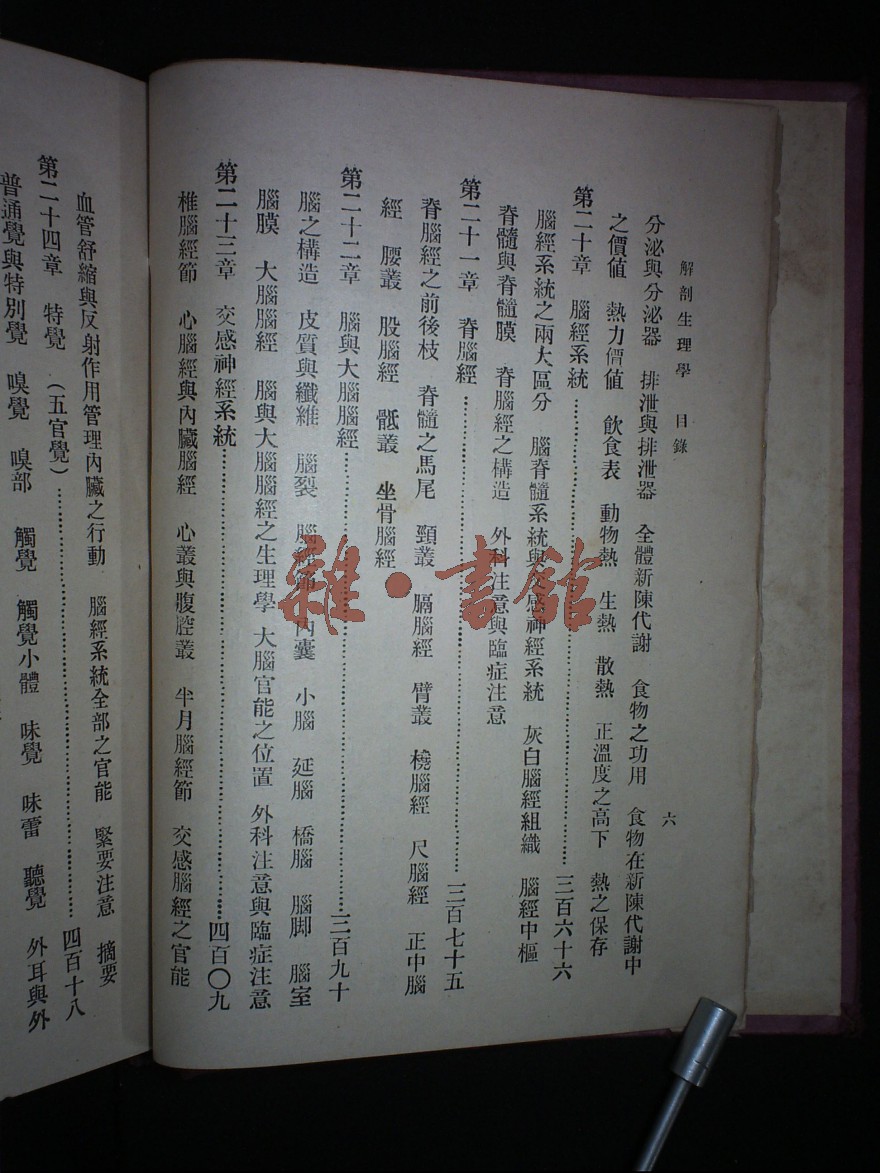 解剖生理學 目錄
六
分泌與分泌器 排泄與排泄器 全體新陳代謝 食物之功用 食物在新陳代謝中
之價値 熱力價値 飲食表 動物熱 生熱 散熱 正溫度之高下 熱之保存
第二十章 腦經系統……三百六十六
腦經系統之兩大區分 腦脊髓系統與交感神經系統 灰白腦經組織 腦經中樞
脊髓與脊髓膜 脊腦經之構造 外科注意與臨症注意
第二十一章 脊腦經……三百七十五
脊腦經之前後枝 脊髓之馬尾 頸叢 膈腦經 臂叢 橈腦經 尺腦經 正中腦
經 腰叢 股腦經 骶叢 坐骨腦經
第二十二章 腦與大腦腦經……三百九十
腦之構造 皮質與纖維 腦裂 腦經節 內囊 小腦 延腦 橋腦 腦脚 腦室
腦膜 大腦腦經 腦與大腦腦經之生理學 大腦官能之位置 外科注意與臨症注意
第二十三章 交感神經系統……四百〇九
椎腦經節 心腦經與內臟腦經 心叢與腹腔叢 半月腦經節 交感腦經之官能
血管舒縮與反射作用管理內臟之行動 腦經系統全部之官能 緊要注意 摘要
第二十四章 特覺（五官覺）……四百十八
普通覺與特別覺 嗅覺 嗅部 觸覺 觸覺小體 味覺 味蕾 聽覺 外耳與外
雜·書館